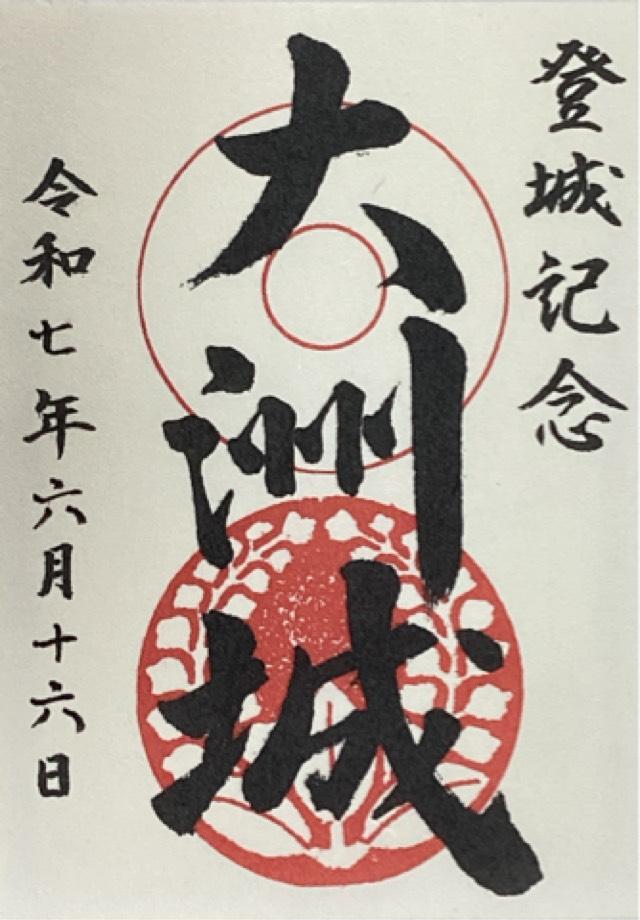 登城記念
大洲城
令和七年六月十六日